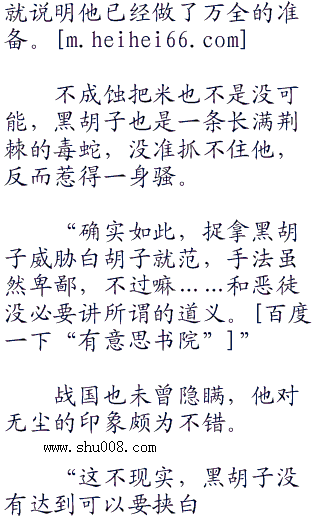 就说明他已经做了万全的准
备。[m.heihei66.com]
不成蚀把米也不是没可
能，黑胡子也是一条长满荆
棘的毒蛇，没准抓不住他，
反而惹得一身骚。
“确实如此，捉拿黑胡
子威胁白胡子就范，手法虽
然卑鄙，不过嘛……和恶徒
没必要讲所谓的道义。[百度
一下“有意思书院”]”
战国也未曾隐瞒，他对
无尘的印象颇为不错。
www.shu008.com
“这不现实，黑胡子没
有达到可以要挟白